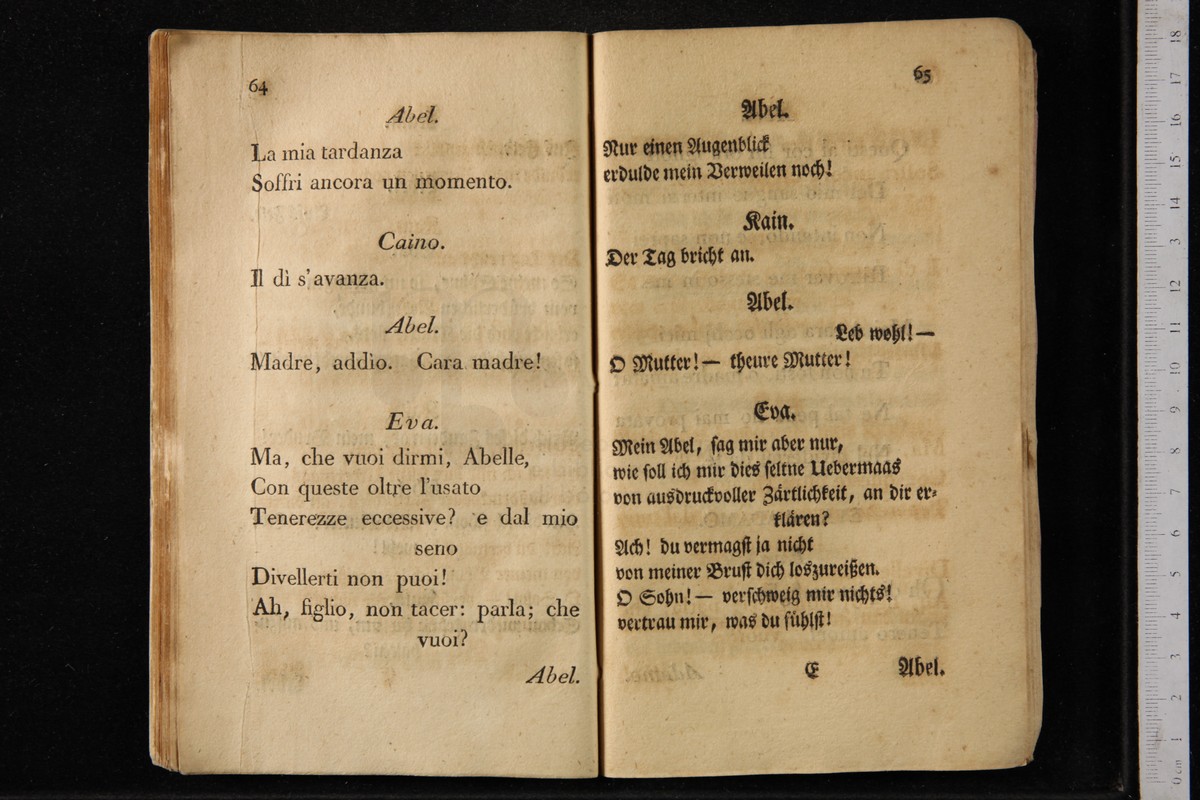 64
Abel.
La mia tardanza
Soffri ancora un momento.
Caino.
Il dì s'avanza.
Abel.
Madre, addio. Cara madre!
Eva.
Ma, che vuoi dirmi, Abelle,
Con queste oltre l'usato
Tenerezze eccessive? e dal mio
seno
Divellerti non puoi!
Ah, figlio, non tacer: parla; che
vuoi?
Abel.
65
Abel.
Nur einen Augenblick
erdulde mein Verweilen noch!
Kain.
Der Tag bricht an.
Abel.
Leb wohl! —
O Mutter! — theure Mutter!
Eva.
Mein Abel, sag mir aber nur,
wie soll ich mir dies seltne Uebermaas
von ausdruckvoller Zärtlichkeit, an dir er-
klären?
Ach! du vermagst ja nicht
von meiner Brust dich loszureißen.
O Sohn! — verschweig mir nichts!
vertrau mir, was du fühlst!
E Abel.
0 cm 1 2 3 4 5 6 7 8 9 10 11 12 13 14 15 16 17 18